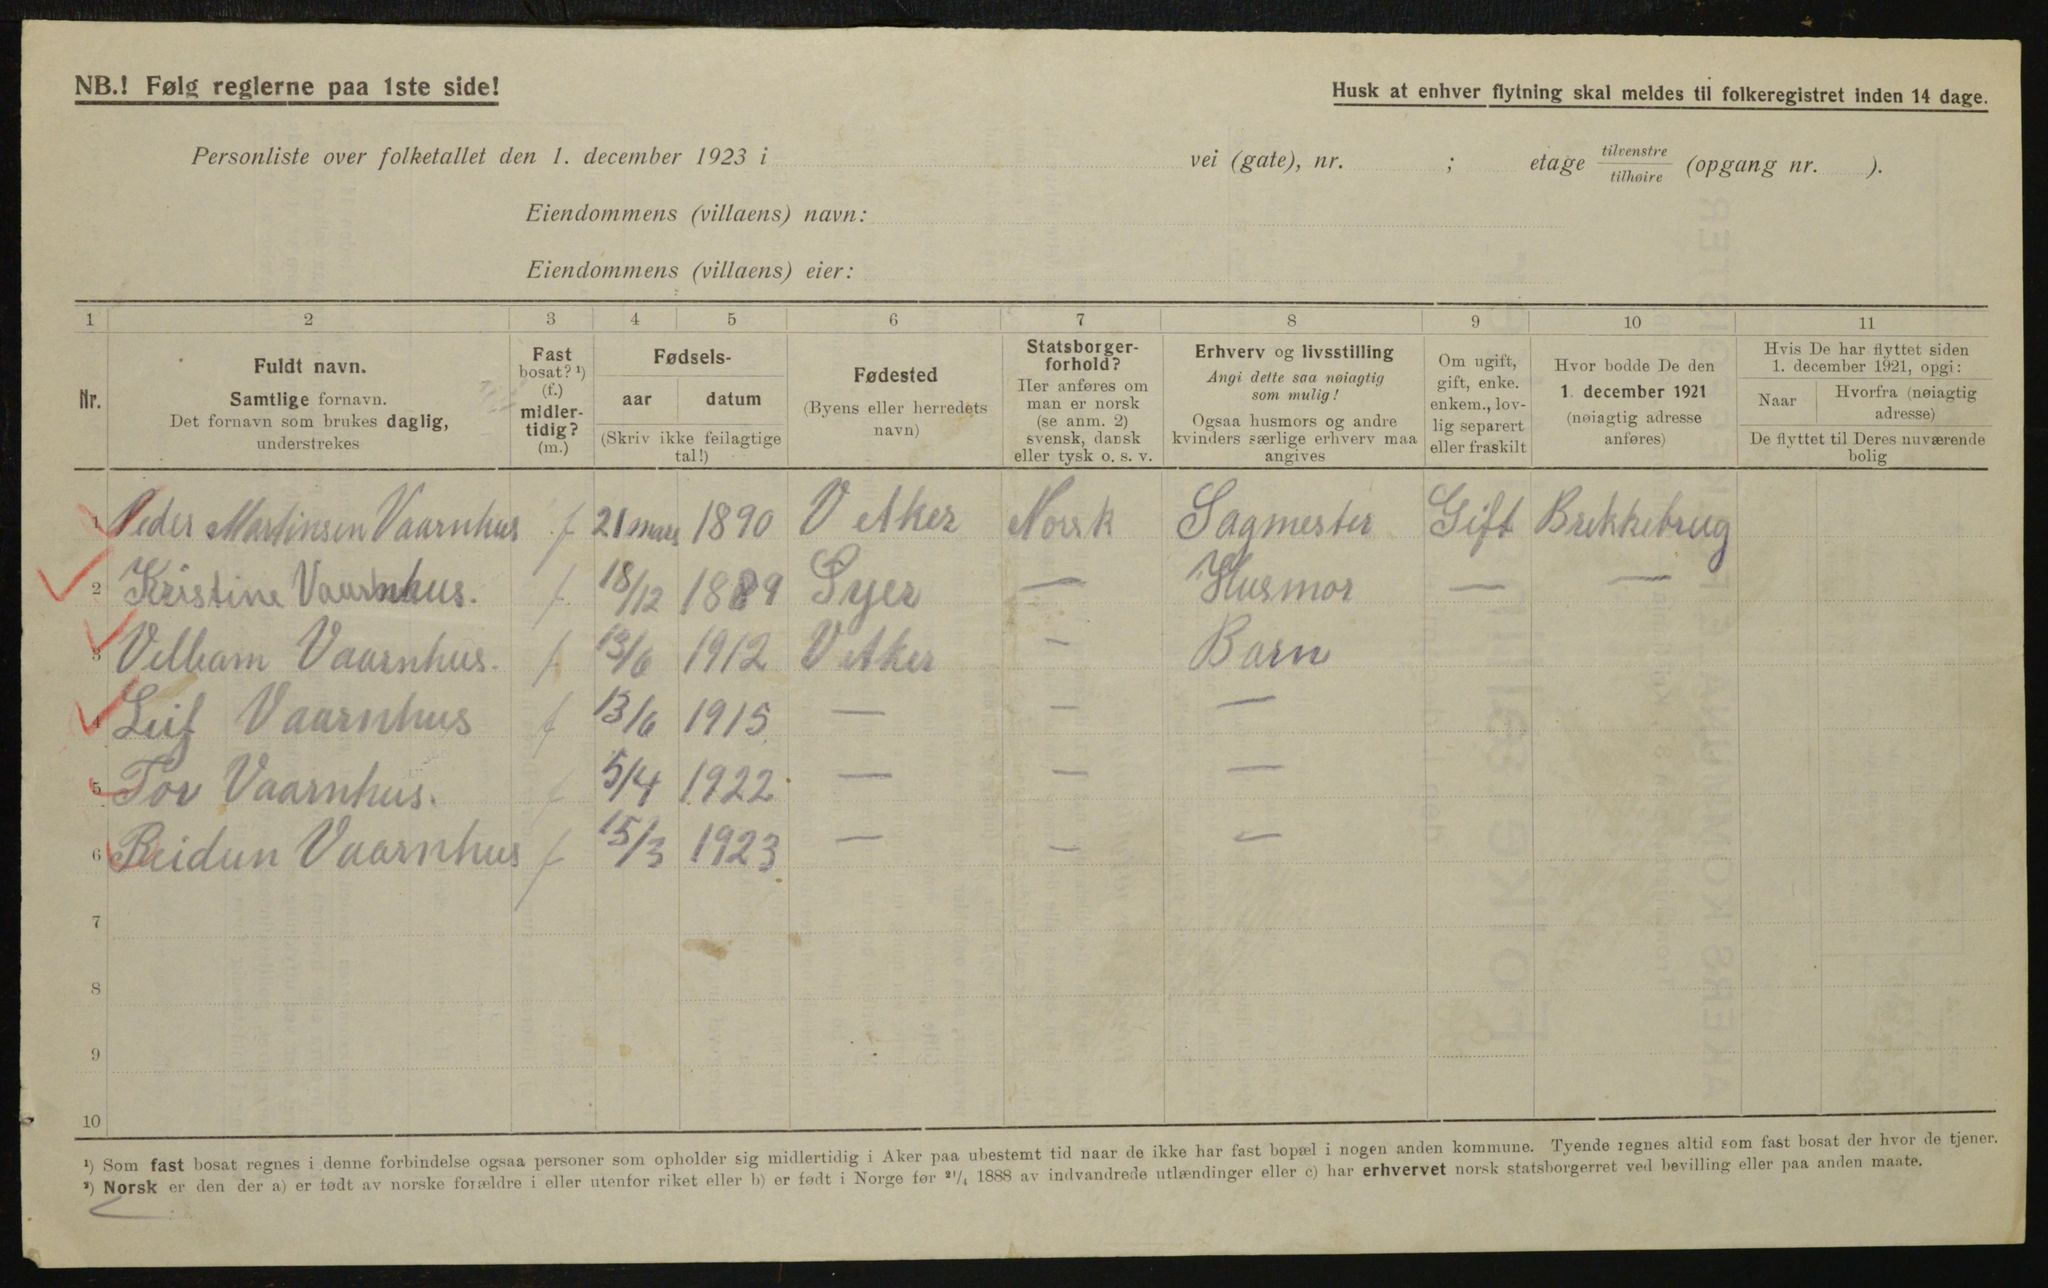 NB.! Følg reglerne paa 1ste side!
Husk at enhver flytning skal meldes til folkeregistret inden 14 dage.
Personliste over folketallet den 1. december 1923 i vei (gate), nr. ; etage tilvenstre tilhøire (opgang nr. ).
Eiendommens (villaens) navn:
Eiendommens (villaens) eier:
1 2 3 4 5 6 7 8 9 10 11
Nr.
Fuldt navn.
Samtlige fornavn.
Det fornavn som brukes daglig,
understrekes
Fast
bosat? ¹)
(f.)
midler-
tidig?
(m.)
Fødsels-
aar datum
(Skriv ikke feilagtige
tal!)
Fødested
(Byens eller herredets
navn)
Statsborger-
forhold?
Her anføres om
man er norsk
(se anm. 2)
svensk, dansk
eller tysk o. s. v.
Erhverv og livsstilling
Angi dette saa nøiagtig
som mulig!
Ogsaa husmors og andre
kvinders særlige erhverv maa
angives
Om ugift,
gift, enke.
enkem., lov-
lig separert
eller fraskilt
Hvor bodde De den
1. december 1921
(nøiagtig adresse
anføres)
Hvis De har flyttet siden
1. december 1921, opgi:
Naar
Hvorfra (nøiagtig
adresse)
De flyttet til Deres nuværende
bolig
1 Peder Martinsen Vaarnhus f 21 mars 1890 V Aker Norsk Sagmester Gift Brekkebrug
2 Kristine Vaarnhus. f. 18/12 1889 Syer — Husmor — —
3 Velham Vaarnhus. f 13/6 1912 V Aker — Barn
4 Leif Vaarnhus f 13/6 1915 — — —
5 Tov Vaarnhus. f 5/4 1922 — — —
6 Reidun Vaarnhus f 15/3 1923 — — —
7
8
9
10
¹) Som fast bosat regnes i denne forbindelse ogsaa personer som opholder sig midlertidig i Aker paa ubestemt tid naar de ikke har fast bopæl i nogen anden kommune. Tyende regnes altid som fast bosat der hvor de tjener.
²) Norsk er den der a) er født av norske forældre i eller utenfor riket eller b) er født i Norge før ²¹/₄ 1888 av indvandrede utlændinger eller c) har erhvervet norsk statsborgerret ved bevilling eller paa anden maate.